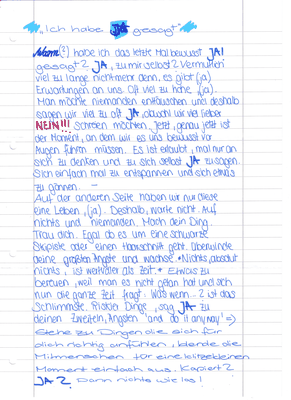 "Ich habe JA gesagt"
Wann(?) habe ich das letzte Mal bewusst JA!
gesagt? JA, zu mir selbst? Vermutlich
viel zu lange nicht mehr denn, es gibt (ja)
Erwartungen an uns. Oft viel zu hohe (ja).
Man möchte niemanden enttäuschen und deshalb
sagen wir viel zu oft JA obwohl wir viel lieber
NEIN!!! Schreien möchten. Jetzt, genau jetzt ist
der Moment, an dem wir es uns bewusst vor
Augen führen müssen. Es ist erlaubt, mal nur an
sich zu denken und zu sich selbst JA zu sagen.
Sich einfach mal zu entspannen und sich etwas
zu gönnen. —
Auf der anderen Seite haben wir nur diese
eine Leben, (ja). Deshalb, warte nicht. Auf
nichts und niemanden. Mach dein Ding.
Trau dich. Egal ob es um eine schwarze
Skipiste oder einen Haarschnitt geht. Überwinde
deine größten Ängste und wachse. *Nichts, absolut
nichts, ist wertvoller als Zeit.* Etwas zu
bereuen, weil man es nicht getan hat und sich
nun die ganze Zeit fragt: Was wenn..? ist das
Schlimmste. Riskier Dinge, sag JA zu
deinen Zweifeln, Ängsten "and do it anyway!" =>
Gehe zu Dingen die sich für
dich richtig anfühlen, blende die
Mitmenschen für eine klitzekleinen
Moment einfach aus. Kapiert?
JA? Dann nichts wie los!